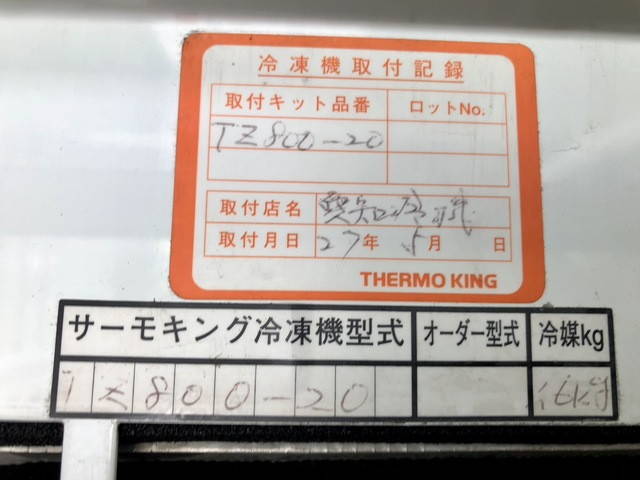 冷凍機取付記録
取付キット品番 ロットNo.
TZ800-20
取付店名
取付月日 27年 5月 日
THERMO KING
サーモキング冷凍機型式 オーダー型式 冷媒kg
TZ800-20